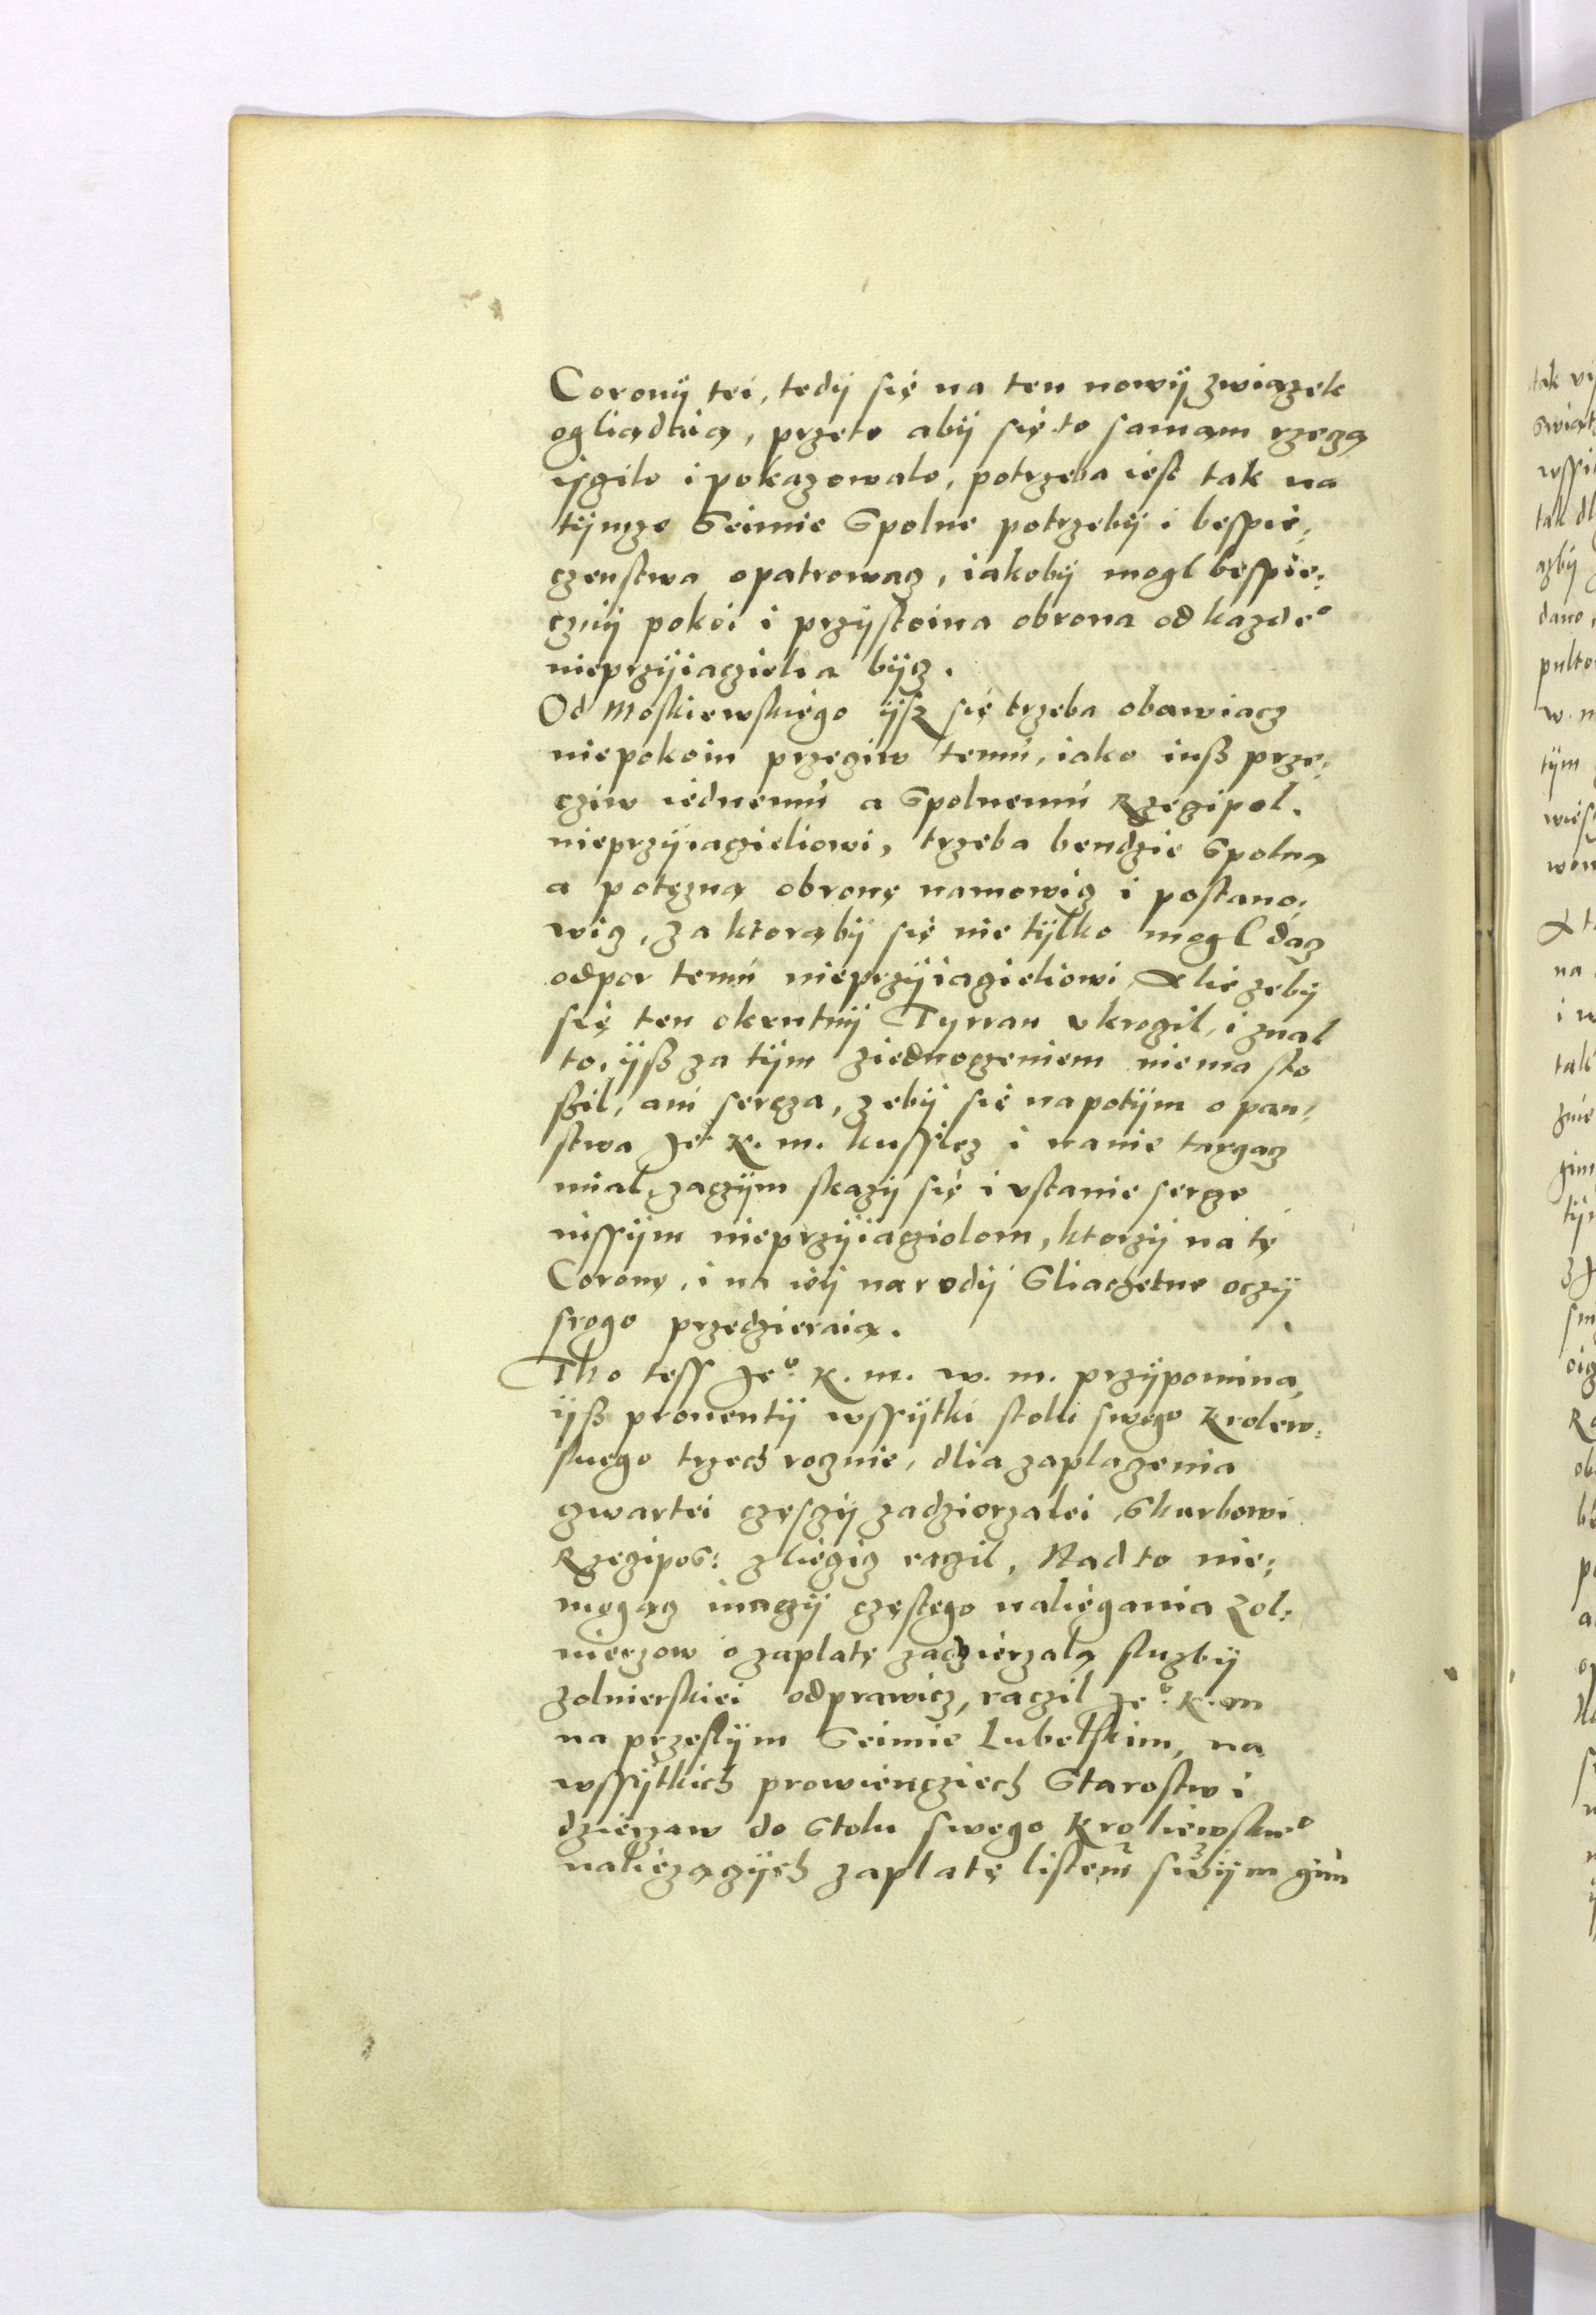 Coronÿ tei, tedÿ się na ten nowÿ związek
ogliądaią, przeto abÿ się to samąm rzeczą
isczilo i pokazowalo, potrzeba iest tak na
tÿmze Seimie Spolne potrzebÿ i bespie,
czenstwa opatrowacz, iakobÿ mogl bespie:
cznÿ pokoi i przÿstoina obrona od kazdeº
nieprzÿiacziela bÿcz.
Od Moskiewskiego ÿsz się trzeba obawiacz
niepokoiu przecziw temu, iako iusz prze:
cziw iednemu a Spolnemu Rzeczipol.
nieprzÿiaczieliowi, trzeba bendzie Spolną
a potęzną obronę namowicz i postano:
wicz, za ktorąbÿ się nie tÿlko mogl dacz
odpor temu nieprzÿiaczieliowi Alie zebÿ
się ten okrutnÿ Tyrran ukroczil, i znal
to, ÿsz za tÿm ziednoczeniem niema sto
szil, ani sercza, zebÿ się napotÿm o pan:
stwa Jeº K. m. kussicz i nanie targacz
mial, zaczÿm skazÿ się i ustanie sercze
inssÿm nieprzÿiacziolom, ktorzÿ na tę
Coronę, i na ieÿ narodÿ Sliachetne oczÿ
srogo przedzieraią.
Tho tess Jeº. K. m. w. m. przÿpomina,
ÿsz prouentÿ wssÿtki stolu swego Krolew:
skiego trzech rocznie, dlia zaplaczenia
czwartei częsczÿ zadzierzalei Skarbowi
Rzeczipos: zlieczicz raczil, Nad to nie:
mogącz inaczÿ częstego naliegania Zol:
nierzow o zaplatę zadzierzalą sluzbÿ
zolnierskiei odprawicz, raczil Jeº. K. m
na przeslÿm Seimie Lubelskim, na
wssÿtkich prowiencziech Starostw i
dzierzaw do Stolu swego Kroliewskieº
naliezączÿch zaplatę listem swÿm